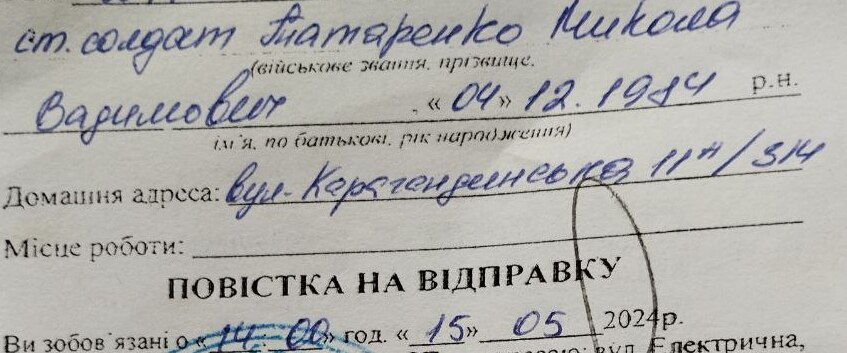 ст. солдат Татаренко Микола
(військове звання, прізвище,
Вадимович, «04» 12.1984 р.н.
ім'я, по батькові, рік народження)
Домашня адреса: вул. Карагандинська 11А/314
Місце роботи:
ПОВІСТКА НА ВІДПРАВКУ
Ви зобов'язані о «14.00» год. «15» 05 2024р.
вул. Електрична,